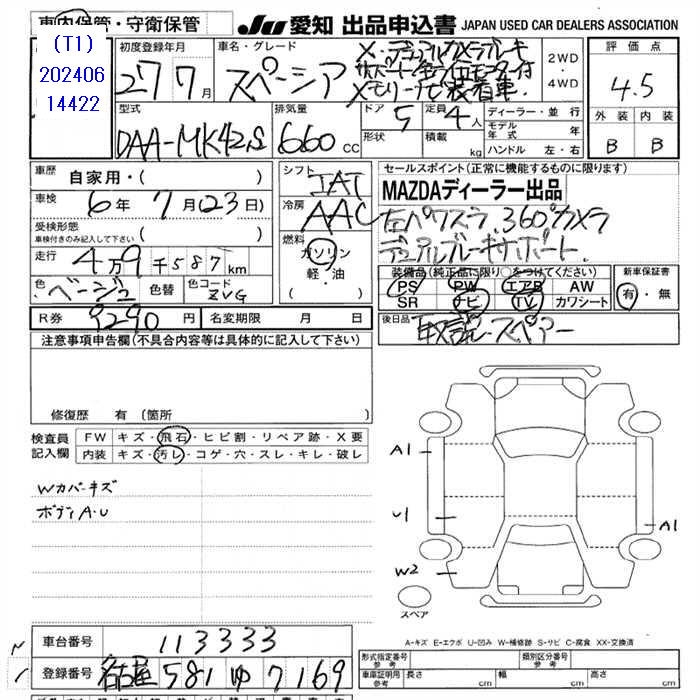 車内保管・守衛保管
(T1)
202406
14422
JU 愛知 出品申込書 JAPAN USED CAR DEALERS ASSOCIATION
初度登録年月
27 7月
車名・グレード
スペーシア
X・デュアルカメラブレーキ
サポート
メモリーナビ装着車
2WD
・
4WD
評価点
4.5
外装 内装
B B
型式
DAA-MK42S
排気量
660cc
ドア
5
形状
定員
4人
積載
kg
ディーラー・並行
モデル年式 年
ハンドル 左・右
車歴
自家用・( )
車検
6年 7月(23日)
受検形態
車検付きのみ記入して下さい ( )
走行
4万9千587km
色
ベージュ
色替
色コード
ZVG
シフト
IAT
冷房
AAC
燃料
ガソリン
軽・油
セールスポイント(正常に機能するものに限ります)
MAZDAディーラー出品
左パワスラ、360°カメラ
デュアルブレーキサポート
装備品(純正品に限り)をつけてください
PS PW エアB AW
SR ナビ TV カワシート
新車保証書
有・無
後日品
取説、スペアー
R券
9290円
名変期限 月 日
注意事項申告欄(不具合内容等は具体的に記入して下さい)
修復歴 有(箇所
検査員記入欄
FW キズ・飛石・ヒビ割・リペア跡・X要
内装 キズ・汚レ・コゲ・穴・スレ・キレ・破レ
Wカバーキズ
ボディA・U
A1
U1
A1
W2
スペア
A-キズ E-エクボ U-凹み W-補修跡 S-サビ C-腐食 XX-交換済
車台番号
113333
登録番号
名古屋 581 ゆ 7169
形式指定番号
参考
類別区分番号
参考
車庫証明用
参考
長さ cm
幅 cm
高さ cm